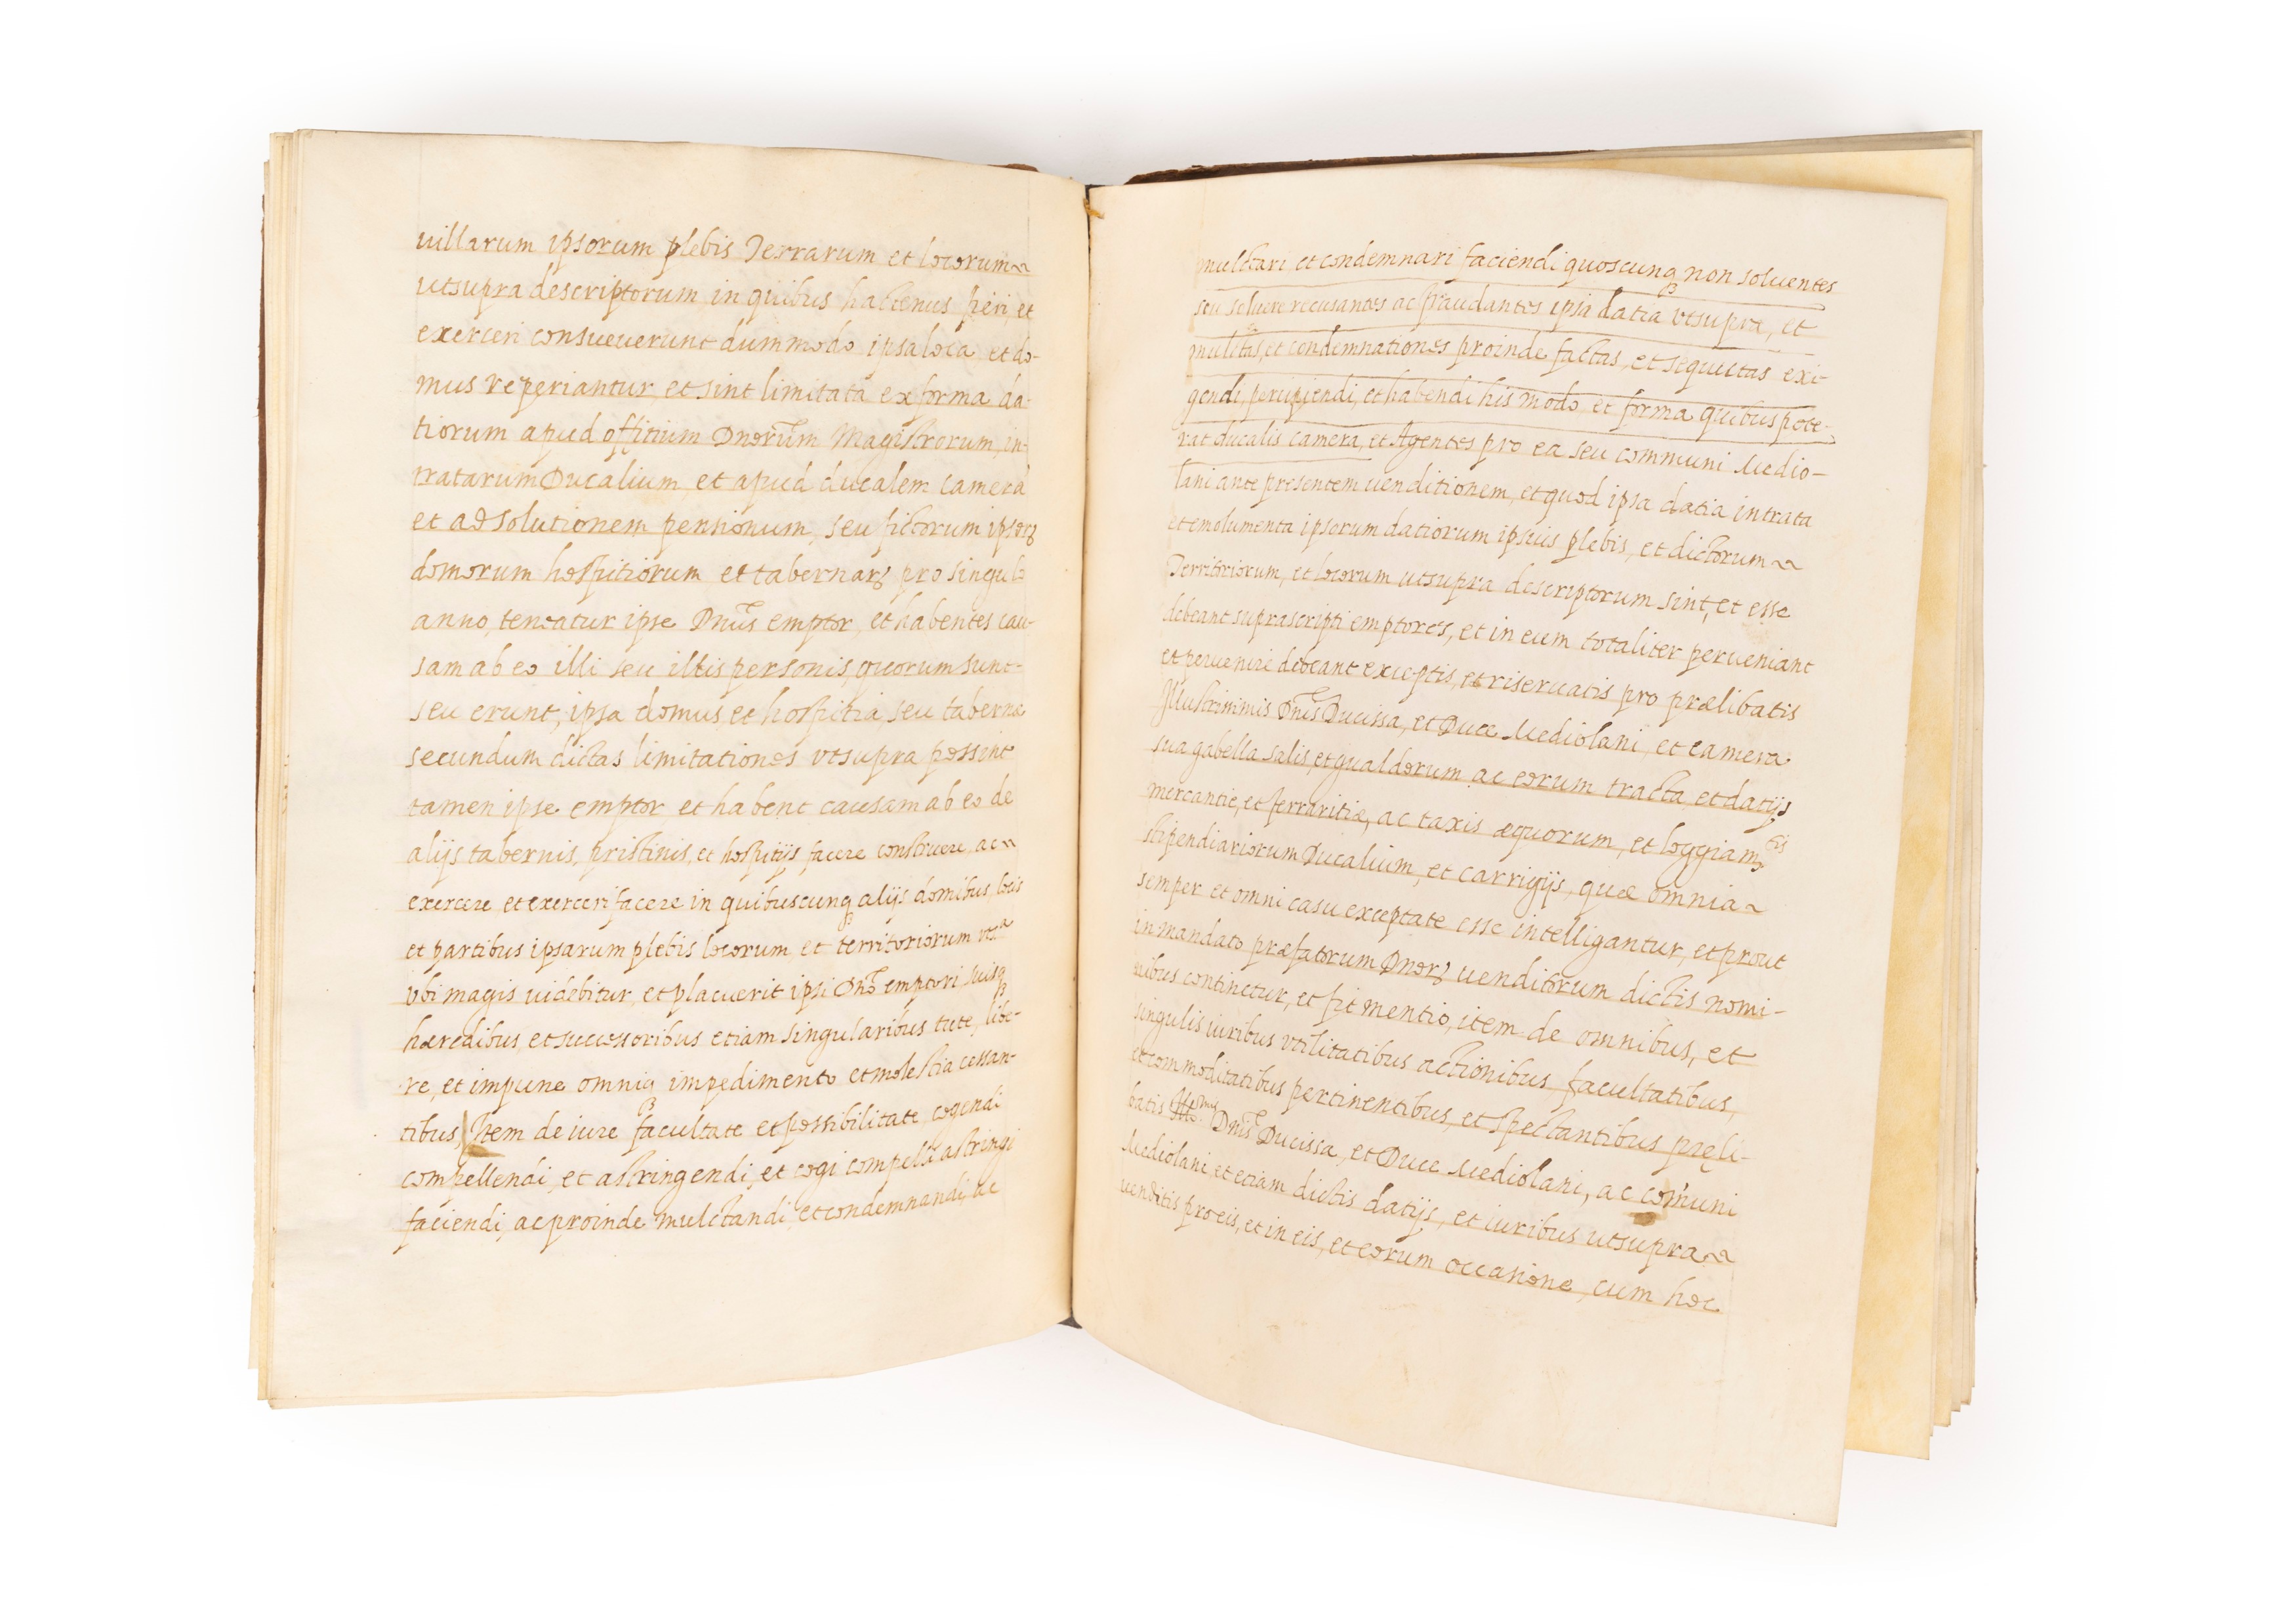 uillarum ipsorum plebis Terrarum et locorum
utsupra descriptorum in quibus hactenus fieri, et
exerceri consueuerunt dummodo ipsa loca et do-
mus reperiantur et sint limitata ex forma da-
tiorum apud offitium Dnorum Magistrorum, in-
tratarum Ducalium et apud ducalem camerã
et ad solutionem pensionum, seu fictorum ipsorꝝ
domorum hospitiorum et tabernarꝝ pro singulo
anno, teneatur ipse Dnus emptor, et habentes cau-
sam ab eo illi seu illis personis, quorum sunt
seu erunt, ipsa domus et hospitia, seu taberna
secundum dictas limitationes vtsupra possint
tamen ipse emptor et habent causam ab eo de
alijs tabernis, pristinis, et hospitijs facere construere ac
exercere et exerceri facere in quibuscunqꝫ alijs domibus, locis
et partibus ipsarum plebis locorum et territoriorum vts.ª
vbi magis uidebitur, et placuerit ipsi Dnõ emptori suisqꝫ
hæredibus, et successoribus etiam singularibus tute, libe-
re, et impune omniqꝫ impedimento et molestia cessan-
tibus, Item de iure facultate et possibilitate cogendi
compellendi, et astringendi, et cogi compelli astringi
faciendi, ac proinde mulctandi, et condemnandi, ac
mulctari, et condemnari faciendi quoscunqꝫ non soluentes
seu soluere recusantes ac fraudantes ipsa datia vtsupra, et
mulctas, et condemnationes proinde factas, et sequutas exi-
gendi, percipiendi, et habendi his modo, et forma quibus pote-
rat ducalis camera, et Agentes pro ea seu communi Medio-
lani ante presentem uenditionem, et quod ipsa datia intrata
et emolumenta ipsorum datiorum ipsius plebis, et dictorum
Territoriorum, et locorum utsupra descriptorum sint, et esse
debeant suprascripti emptores, et in eum totaliter perueniant
et peruenire debeant exceptis, et riseruatis pro prælibatis
Illustrissimis Dnis Ducissa, et Duce Mediolani, et camera
sua gabella salis, et gualdorum ac eorum tracta, et datijs
mercantie, et ferraritiæ, ac taxis æquorum, et loggiam.tis
stipendiariorum Ducalium, et carrigijs, quæ omnia
semper et omni casu exceptate esse intelligantur, et prout
in mandato præfatorum Dnorꝝ uenditorum dictis nomi-
nibus continetur, et fit mentio, item de omnibus, et
singulis iuribus vtilitatibus actionibus, facultatibus,
et commoditatibus pertinentibus, et spectantibus pręli-
batis Ill.mis Dnis Ducissa, et Duce Mediolani, ac comũni
Mediolani et etiam dictis datijs, et iuribus utsupra
uenditis pro eis, et in eis, et eorum occasione, cum hoc